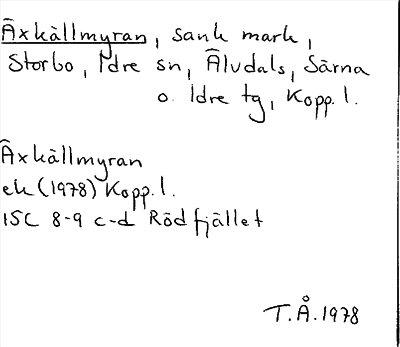 Äxkällmyran, sank mark,
Storbo, Idre sn, Älvdals, Särna
o. Idre tg, Kopp. l.
Äxkällmyran
ek (1978) Kopp. l.
15C 8-9 c-d Rödfjället
T.Å. 1978